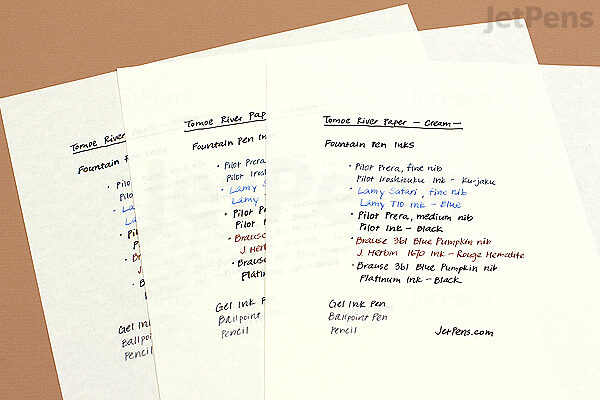 JetPens
Tomoe River
Fountain
Pilo
La
La
Pilo
P
Br
J.
Br
Gel In
Ballpoi
Pencil
Tomoe River Pap
Fountain Pen Ink
• Pilot Prera
Pilot Iros
• Lamy S
Lamy
• Pilot P
Pilot
• Brause
J. Herb
• Brause
Platin
Gel Ink P
Ballpoint
Pencil
Tomoe River Paper – Cream –
Fountain Pen Inks
• Pilot Prera, fine nib
Pilot Iroshizuku Ink – Ku-jaku
• Lamy Safari, fine nib
Lamy T10 Ink – Blue
• Pilot Prera, medium nib
Pilot Ink – Black
• Brause 361 Blue Pumpkin nib
J. Herbin 1670 Ink – Rouge Hematite
• Brause 361 Blue Pumpkin nib
Platinum Ink – Black
Gel Ink Pen
Ballpoint Pen
Pencil
JetPens.com